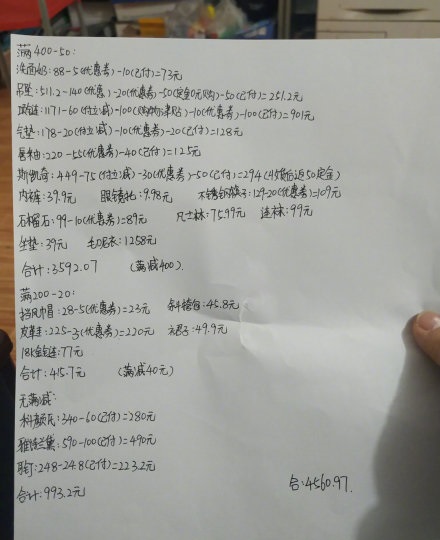 满400-50:
洗面奶:88-5(优惠券)-10(已付)=73元
吊坠:511.2-140(优惠)-20(优惠券)-50(定金0元购)-50(已付)=251.2元
项链:1171-60(付立减)-100(购物津贴)-10(优惠券)-100(已付)=901元
气垫:178-20(付立减)-10(优惠券)-20(已付)=128元
唇釉:220-55(优惠券)-40(已付)=125元
斯凯奇:449-75(付立减)-30(优惠券)-50(已付)=294(付婚后返50定金)
内裤:39.9元 眼镜布:9.98元 不锈钢筷子:129-20(优惠券)=109元
石榴石:99-10(优惠券)=89元 凡士林:75.99元 连裤:99元
坐垫:39元 毛呢衣:1258元
合计:3592.07 (满减400)
满200-20:
挡风巾帽:28-5(优惠券)=23元 斜挎包:45.8元
皮鞋:225-3(优惠券)=220元 裙子:49.9元
18k金链:77元
合计:415.7元 (满减40元)
无满减:
科颜氏:340-60(已付)=280元
雅诗兰黛:590-100(已付)=490元
耳钉:248-24.8(已付)=223.2元
合计:993.2元
合:4560.97.